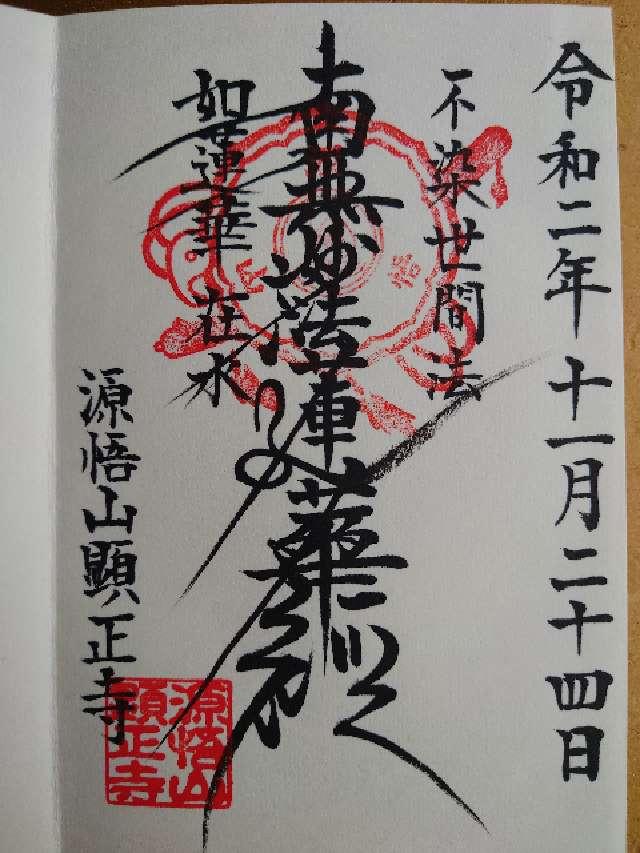 令和二年十一月二十四日
不染世間法
南無妙法蓮華経
如蓮華在水
源悟山顕正寺
源悟山
顕正寺